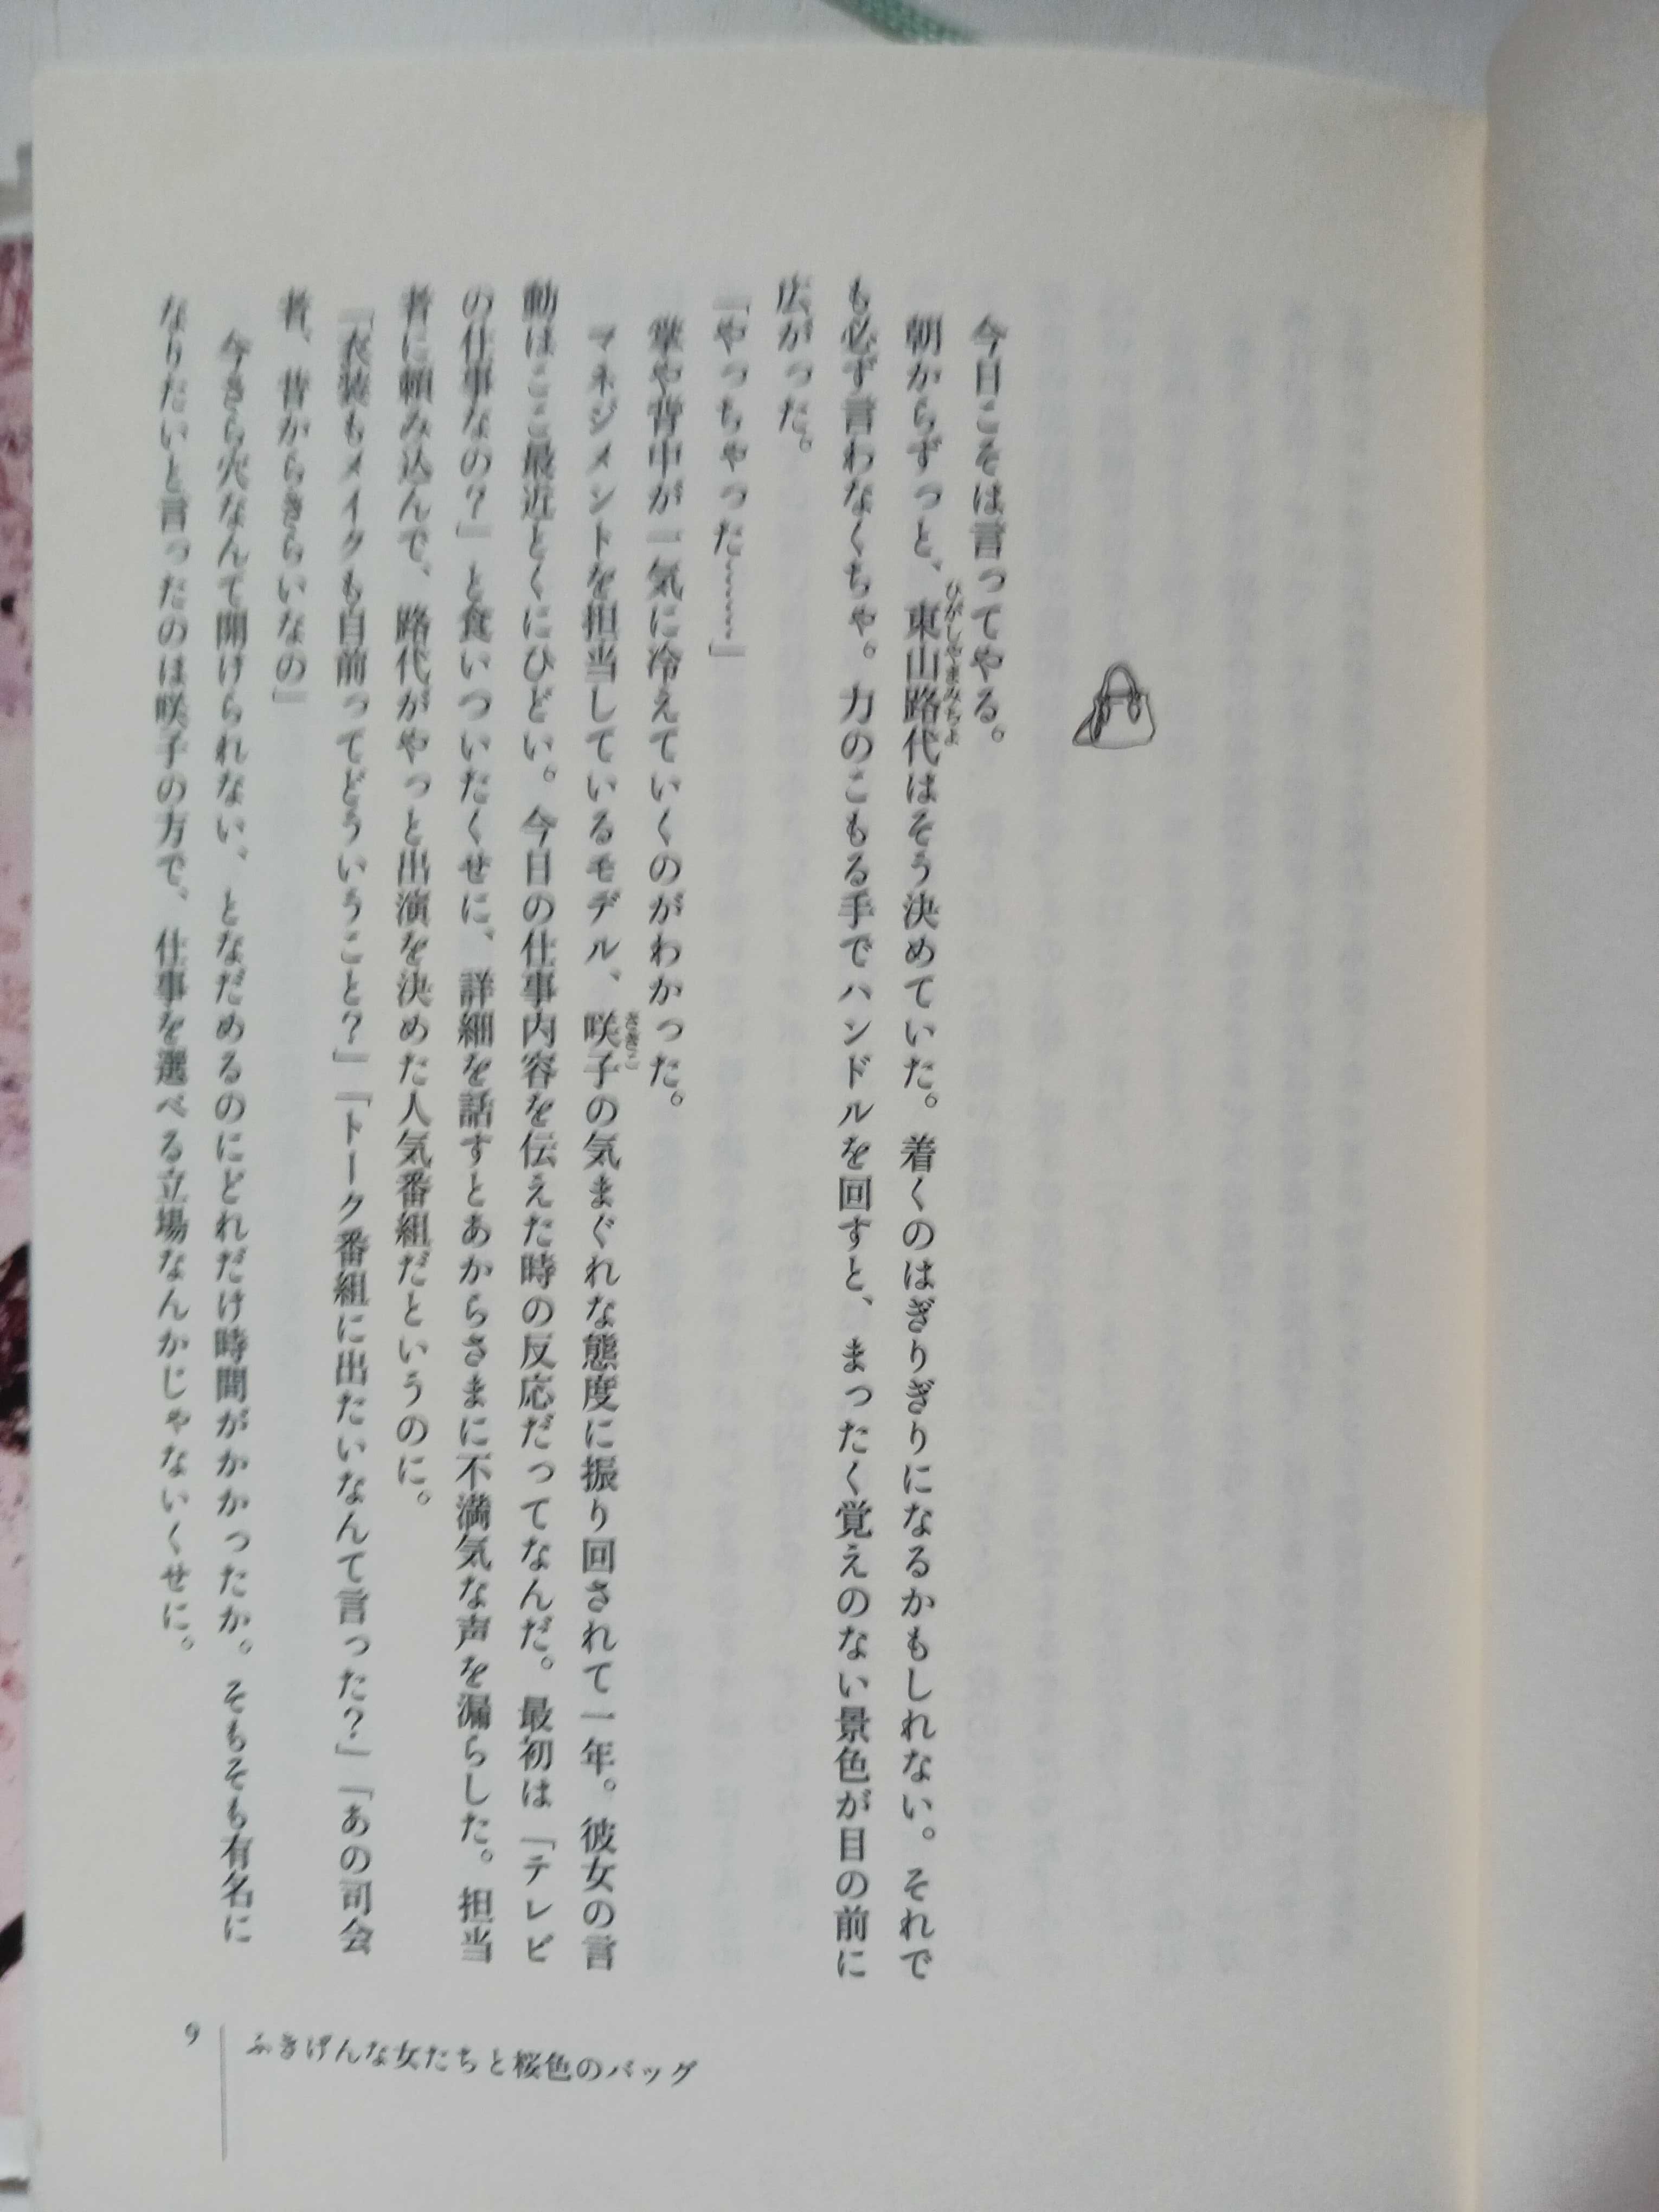 今日こそは言ってやる。
朝からずっと、東山路代はそう決めていた。着くのはぎりぎりになるかもしれない。それで
ひがしやまみちよ
も必ず言わなくちゃ。力のこもる手でハンドルを回すと、まったく覚えのない景色が目の前に
広がった。
「やっちゃった……」
掌や背中が一気に冷えていくのがわかった。
マネジメントを担当しているモデル、咲子の気まぐれな態度に振り回されて一年。彼女の言
さきこ
動はここ最近とくにひどい。今日の仕事内容を伝えた時の反応だってなんだ。最初は「テレビ
の仕事なの？」と食いついたくせに、詳細を話すとあからさまに不満気な声を漏らした。担当
者に頼み込んで、路代がやっと出演を決めた人気番組だというのに。
「衣装もメイクも自前ってどういうこと？」「トーク番組に出たいなんて言った？」「あの司会
者、昔からきらいなの」
今さら穴なんて開けられない、となだめるのにどれだけ時間がかかったか。そもそも有名に
なりたいと言ったのは咲子の方で、仕事を選べる立場なんかじゃないくせに。
9
ふきげんな女たちと桜色のバッグ